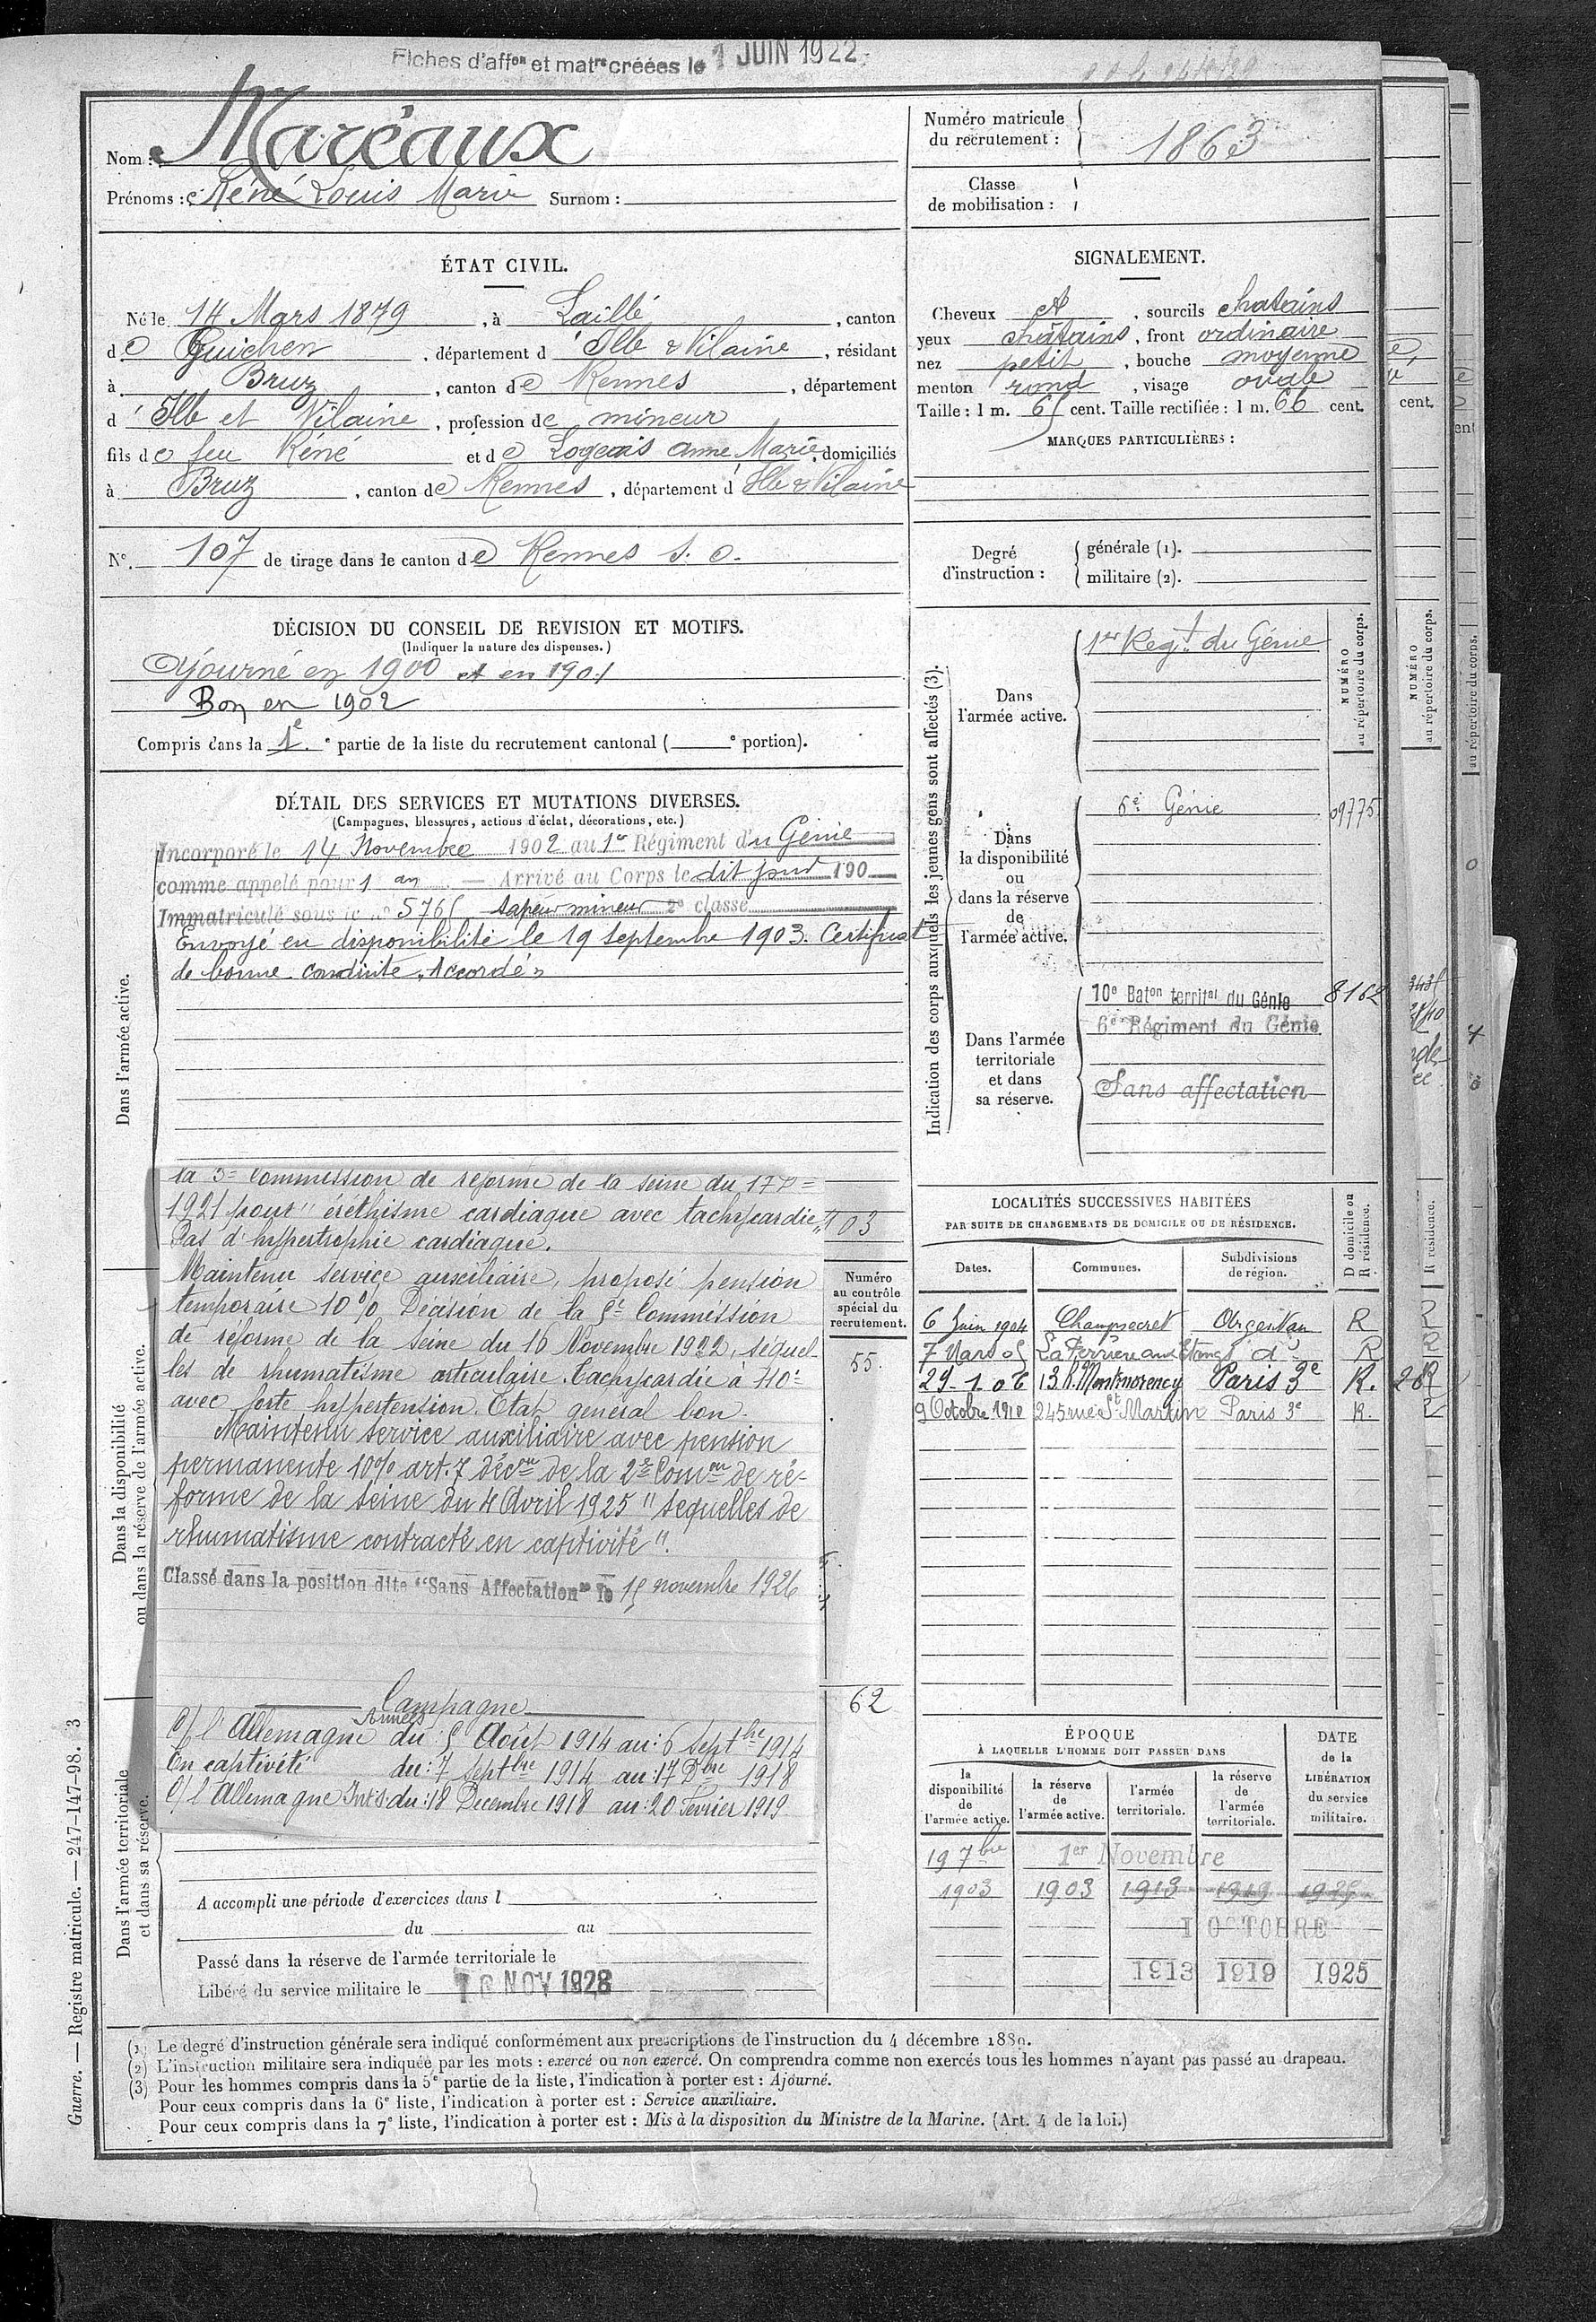 Fiches d'affon et matre créées le 1 JUIN 1922
Nom : Maréaux
Prénoms : René Louis Marie Surnom :
Numéro matricule
du recrutement : 1863
Classe
de mobilisation :
ÉTAT CIVIL.
Né le 14 Mars 1879, à Laillé, canton
de Guichen, département d'Ille & Vilaine, résidant
à Bruz, canton de Rennes, département
d'Ille et Vilaine, profession de mineur
fils de feu Réné et de Logeais Anne Marie, domiciliés
à Bruz, canton de Rennes, département d'Ille & Vilaine
N° 107 de tirage dans le canton de Rennes S. O.
SIGNALEMENT.
Cheveux et, sourcils chatains
yeux chatains, front ordinaire
nez petit, bouche moyenne
menton rond, visage ovale
Taille : 1 m. 65 cent. Taille rectifiée : 1 m. 66 cent.
MARQUES PARTICULIÈRES :
Degré
d'instruction :
générale (1).
militaire (2).
DÉCISION DU CONSEIL DE REVISION ET MOTIFS.
(Indiquer la nature des dispenses.)
Ajourné en 1900 et en 1901
Bon en 1902
Compris dans la 1e partie de la liste du recrutement cantonal ( e portion).
DÉTAIL DES SERVICES ET MUTATIONS DIVERSES.
(Campagnes, blessures, actions d'éclat, décorations, etc.)
Dans l'armée active.
Incorporé le 14 Novembre 1902 au 1er Régiment du Génie
comme appelé pour 1 an — Arrivé au Corps le dit jour 190
Immatriculé sous le n° 5765 sapeur mineur 2e classe
Envoyé en disponibilité le 19 Septembre 1903. Certificat
de bonne conduite "Accordé"
la 3e Commission de réforme de la Seine du 17
1921 pour "éréthisme cardiaque avec tachycardie"
Pas d'hypertrophie cardiaque.
Maintenu service auxiliaire, proposé pension
temporaire 10% Décision de la 5e Commission
de réforme de la Seine du 16 Novembre 1922, séquel-
les de rhumatisme articulaire. Tachycardie à 110
avec forte hypertension. Etat général bon.
Maintenu service auxiliaire avec pension
permanente 10% art. 7 décon de la 2e Comon de ré-
forme de la Seine du 4 Avril 1925 "séquelles de
rhumatisme contracté en captivité".
Classé dans la position dite "Sans Affectation" le 15 novembre 1926
Campagne
C/ l'Allemagne Armées du : 5 Août 1914 au : 6 Septbre 1914
En captivité du : 7 Septbre 1914 au : 17 Dbre 1918
C/ l'Allemagne Intr du : 18 Decembre 1918 au : 20 Fevrier 1919
103
Numéro
au contrôle
spécial du
recrutement.
55.
62
Dans la disponibilité
ou dans la réserve de l'armée active.
Dans l'armée territoriale
et dans sa réserve.
A accompli une période d'exercices dans l
du au
Passé dans la réserve de l'armée territoriale le
Libéré du service militaire le 10 NOV 1928
Indication des corps auxquels les jeunes gens sont affectés (3).
NUMÉRO
au répertoire du corps.
Dans
l'armée active.
1er Régt du Génie
Dans
la disponibilité
ou
dans la réserve
de
l'armée active.
6e Génie
09775
Dans l'armée
territoriale
et dans
sa réserve.
10e Baton territal du Génie 8162
6e Régiment du Génie
Sans affectation
LOCALITÉS SUCCESSIVES HABITÉES
PAR SUITE DE CHANGEMENTS DE DOMICILE OU DE RÉSIDENCE.
Dates. Communes. Subdivisions
de région. D domicile ou
R résidence.
6 Juin 1904 Champsecret Argentan R
7 Mars 05 La Ferrière aux Etangs do R
29-1-06 13 R. Montmorency Paris 3e R.
9 Octobre 1910 245 rue St Martin Paris 3e R.
ÉPOQUE
À LAQUELLE L'HOMME DOIT PASSER DANS
DATE
de la
LIBÉRATION
du service
militaire.
la
disponibilité
de
l'armée active.
la réserve
de
l'armée active.
l'armée
territoriale.
la réserve
de
l'armée
territoriale.
19 7bre 1er Novembre
1903 1903 1913 1919
1 OCTOBRE
1913 1919 1925
Guerre. — Registre matricule. — 247-147-98. 3
(1) Le degré d'instruction générale sera indiqué conformément aux prescriptions de l'instruction du 4 décembre 1889.
(2) L'instruction militaire sera indiquée par les mots : exercé ou non exercé. On comprendra comme non exercés tous les hommes n'ayant pas passé au drapeau.
(3) Pour les hommes compris dans la 5e partie de la liste, l'indication à porter est : Ajourné.
Pour ceux compris dans la 6e liste, l'indication à porter est : Service auxiliaire.
Pour ceux compris dans la 7e liste, l'indication à porter est : Mis à la disposition du Ministre de la Marine. (Art. 4 de la loi.)